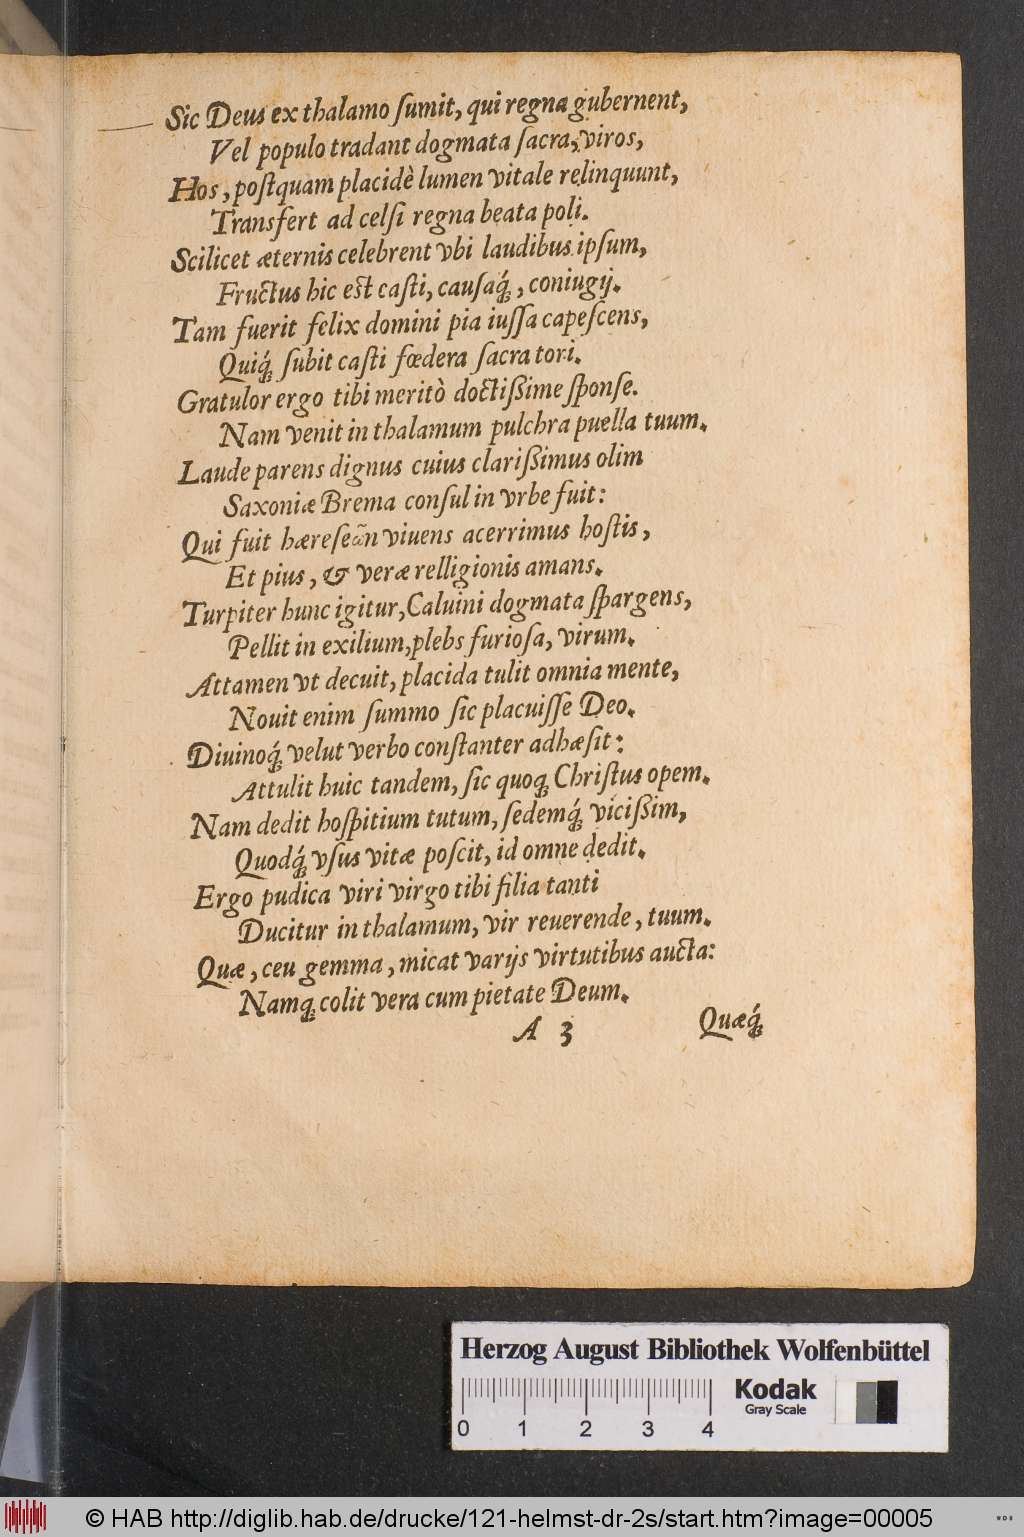 Sic Deus ex thalamo ſumit, qui regna gubernent,
Vel populo tradant dogmata ſacra, viros,
Hos, poſtquam placidè lumen vitale relinquunt,
Transfert ad celſi regna beata poli.
Scilicet æternis celebrent vbi laudibus ipſum,
Fructus hic est caſti, cauſaq́ꝫ, coniugij.
Tam fuerit felix domini pia iuſſa capeſcens,
Quiq́ꝫ ſubit caſti fœdera ſacra tori.
Gratulor ergo tibi meritò doctißime ſponſe.
Nam venit in thalamum pulchra puella tuum.
Laude parens dignus cuius clarißimus olim
Saxoniæ Brema conſul in vrbe fuit:
Qui fuit hæreſeωn viuens acerrimus hoſtis,
Et pius, & veræ relligionis amans.
Turpiter hunc igitur, Caluini dogmata ſpargens,
Pellit in exilium, plebs furioſa, virum.
Attamen vt decuit, placida tulit omnia mente,
Nouit enim ſummo ſic placuiſſe Deo.
Diuinoq́ꝫ velut verbo conſtanter adhæſit:
Attulit huic tandem, ſic quoqꝫ Chriſtus opem.
Nam dedit hoſpitium tutum, ſedemq́ꝫ vicißim,
Quodq́ꝫ vſus vitæ poſcit, id omne dedit.
Ergo pudica viri virgo tibi filia tanti
Ducitur in thalamum, vir reuerende, tuum.
Quæ, ceu gemma, micat varijs virtutibus aucta:
Namqꝫ colit vera cum pietate Deum.
A 3 Quæq́ꝫ
Herzog August Bibliothek Wolfenbüttel
Kodak
Gray Scale
0 1 2 3 4
© HAB http://diglib.hab.de/drucke/121-helmst-dr-2s/start.htm?image=00005